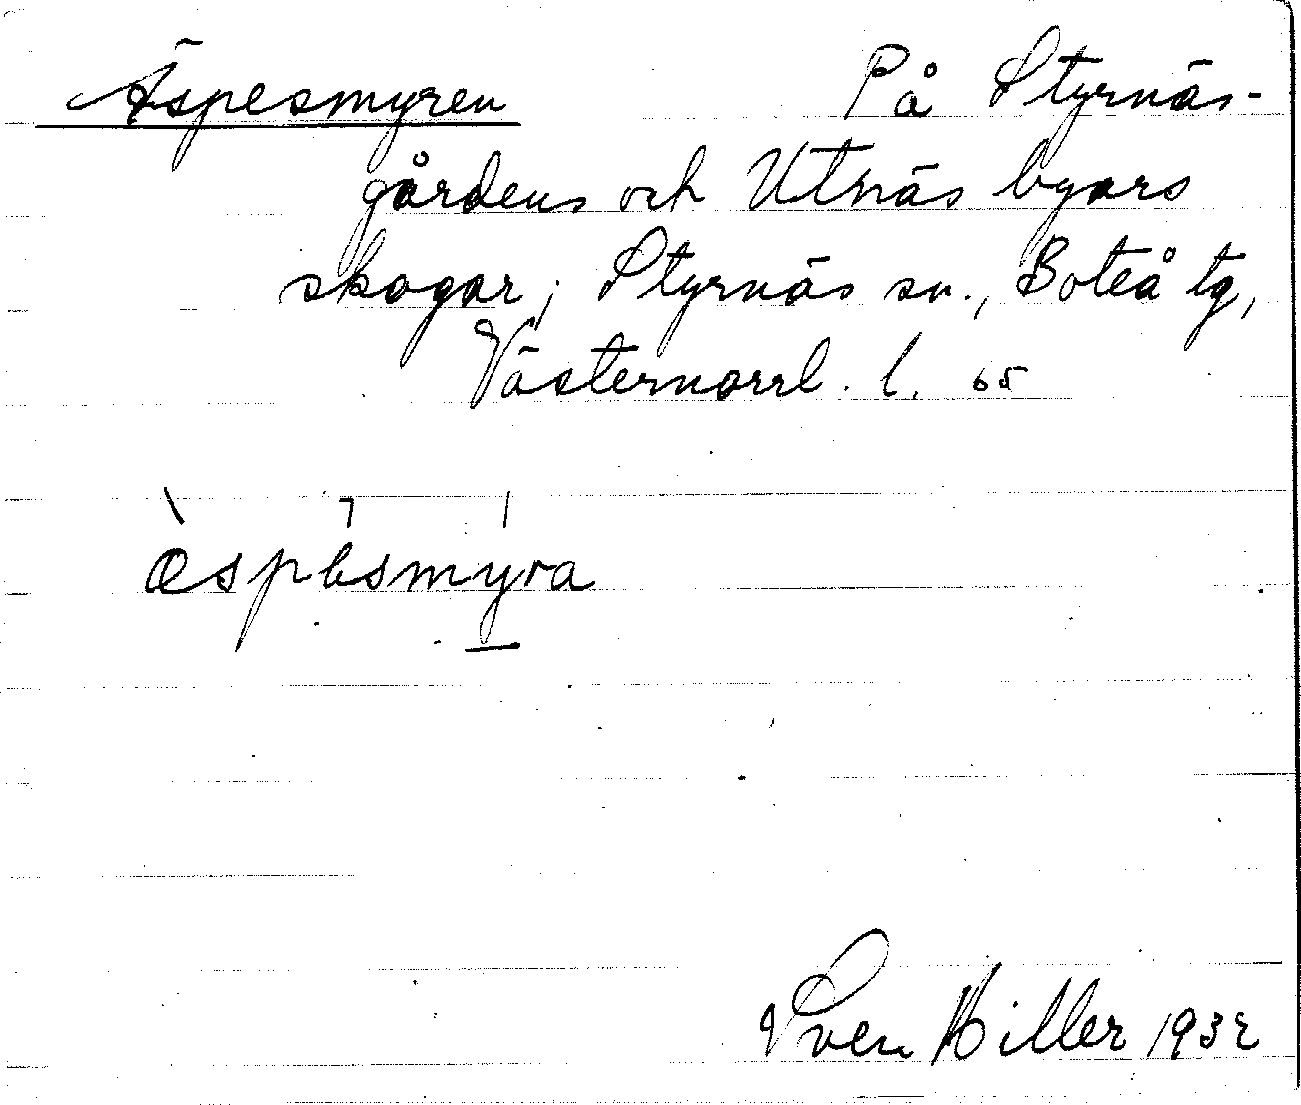 Äspesmyren På Styrnäs-
gårdens och Utnäs byars
skogar; Styrnäs sn., Boteå tg,
Västernorrl. l. 65
æspesmyra
Sven Hiller 1932